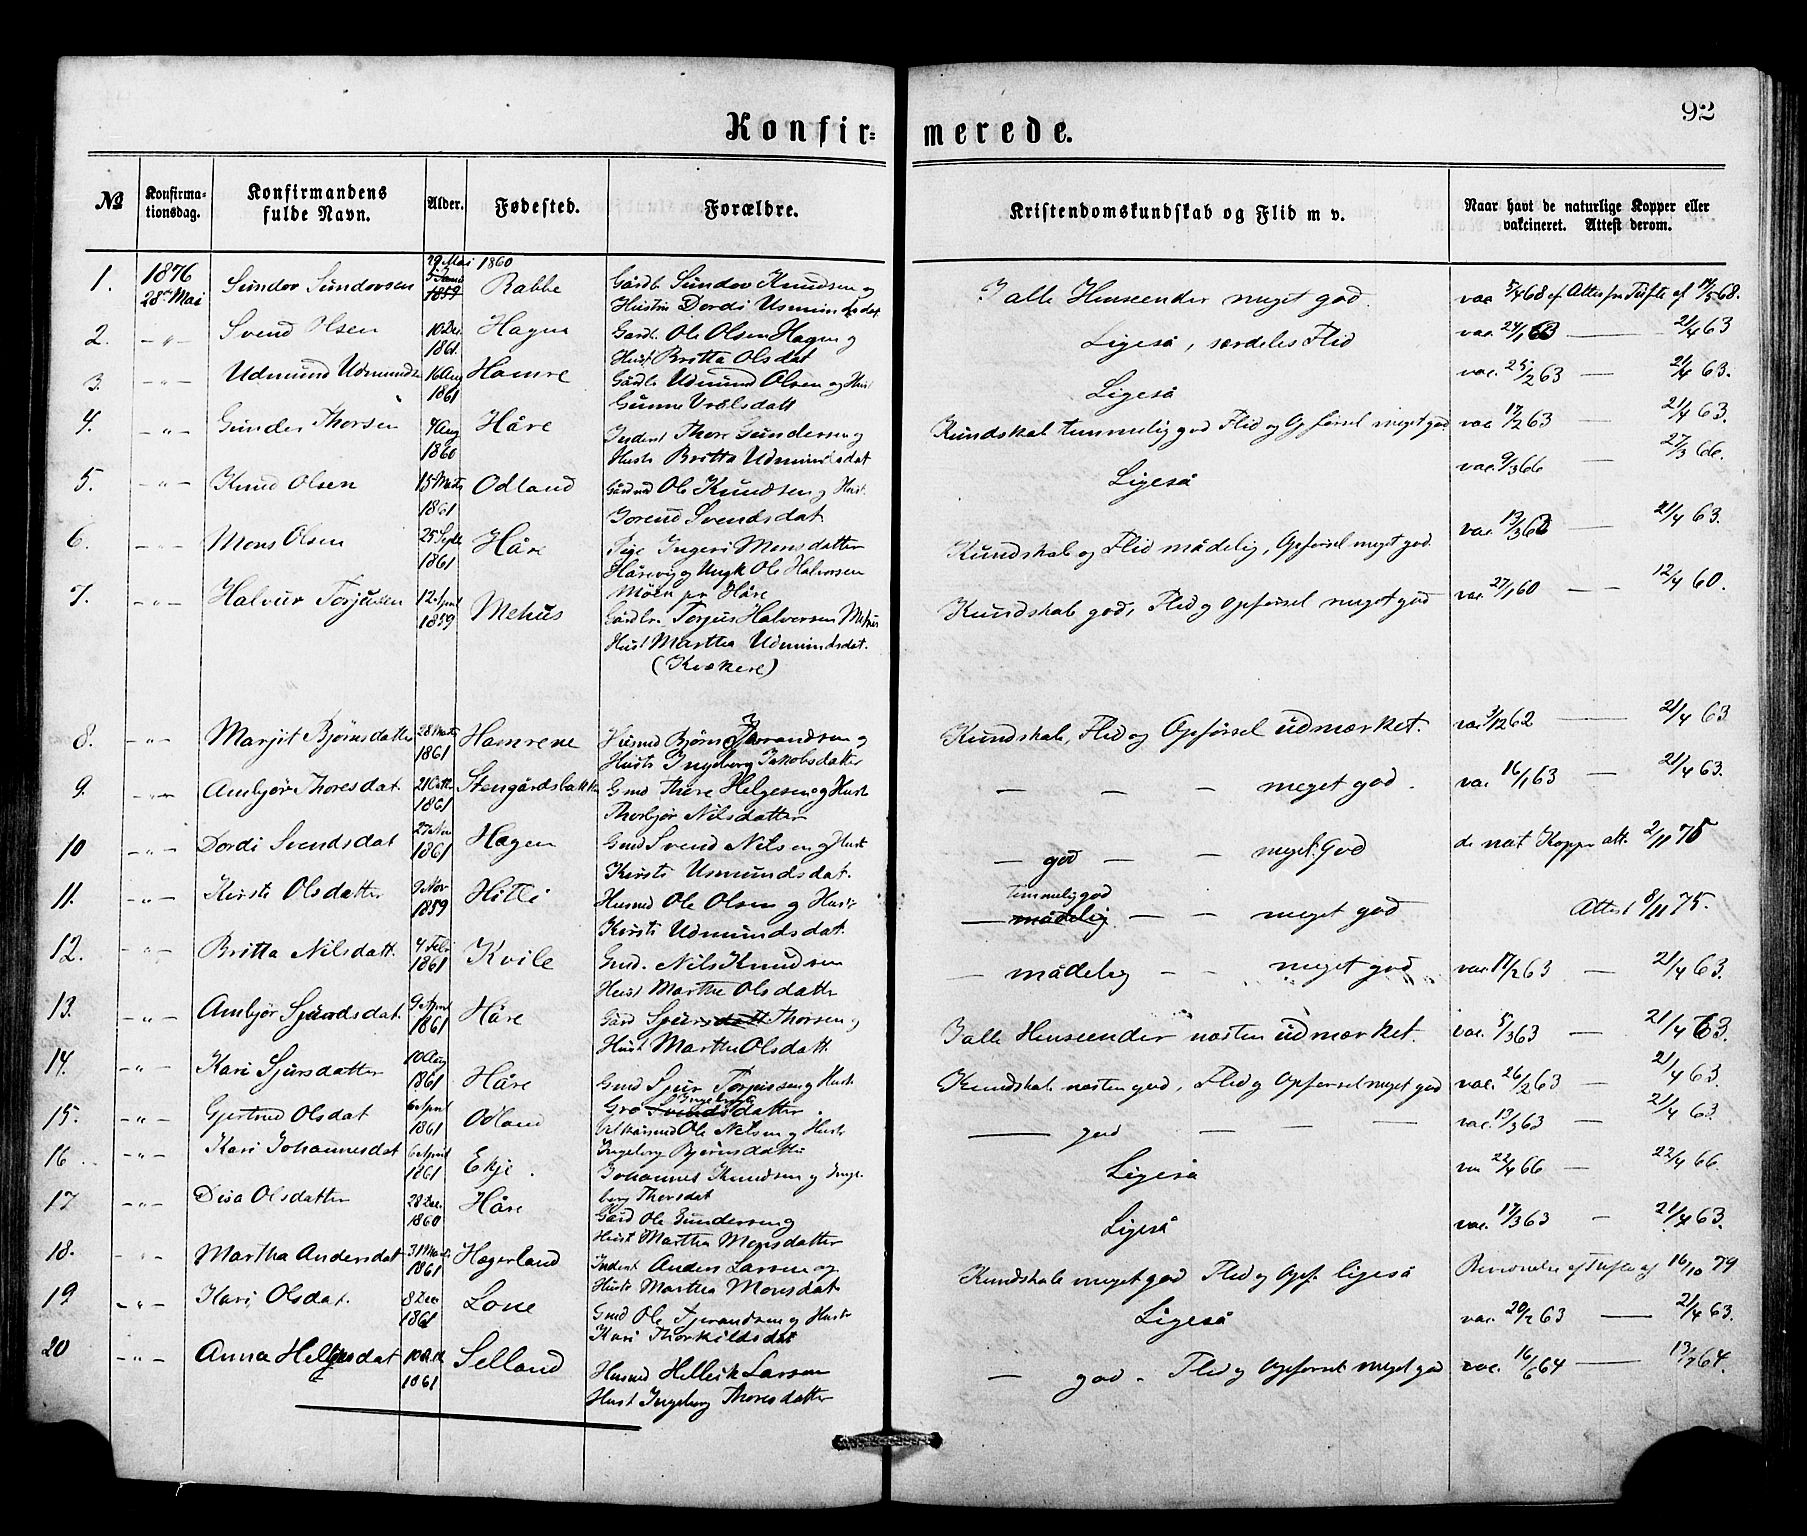 92
Konfir= merede.
№ Konfirma-tionsdag. Konfirmandens fulde Navn. Alder. Fødested. Forældre. Kristendomskundskab og Flid m v. Naar havt de naturlige Kopper eller vakcineret. Attest derom.
29 Mai 1860
1. 1876 28de Mai Sundov Sundovsen 1859 Rabbe Gårdb. Sundov Knudsen og I alle Henseender meget god. vac 5/4 68 Attest fr Tufte af 68.
Hustru Dordi Usmundsdat
2. -"- Svend Olsen 10 Dec. 1861. Hagen Gardb. Ole Olsen Hagen og Ligeså, særdeles Flid vac. — 21/4 63
Hust Britta Olsdat
3. -"- Udmund Udmundsen 16 Aug 1861 Hamre Gårdb Udmund Olsen og Hust Ligeså vac. 25/2 63 — 21/4 63.
Gunne
4. -"- Gunder Thorsen 7 Aug 1860 Håre Inderst Thore Gundersen og Kundskab temmelig god Flid og Opførsel meget god vac 17/2 63 — 21/4 63.
Hustr Britta Udmundsdat
5. -"- Knud Olsen 15 Marts 1861 Odland Gårdmd Ole Knudsen og Hust. Ligeså vac. 9/3 66 — 27/3 66.
Jorend Svendsdat
6. -"- Mons Olsen 25 Septb 1861 Håre Pige Ingeri Monsdatter Kundskab og Flid mådelig, Opførsel meget god. vac 13/3 62 — 21/4 63.
Hårevig og Ungk Ole Halvorsen
Moen pr Håre
7. -"- Halvor Torjusen 12 April 1859 Mehus Gårdbr. Torjus Halvorsen Mehus Kundskab god, Flid og Opførsel meget god vac. 27/1 60 — 12/4 60.
Hust Martha Udmundsdat.
(Kvækere)
8. -"- Marjit Bjørnsdatter 28 Marts 1861 Hamrene Husmd Bjørn og Kundskab, Flid og Opførsel udmærket. vac 3/12 62 — 21/4 63
Hustr Ingeborg Jakobsdatter
9. -"- Ambjør Thoresdat. 21 Octbr 1861 Stengårdsbakken Gmd Thore Helgesen og Hustr — — — meget god. vac. 16/1 63 — 21/4 63.
Thorbjør Nilsdatter
10 -"- Dordi Svendsdat 27 Nov 1861 Hagen Gmd Svend Nilsen og Hustr — god — — meget God de nat Kopper att. 2/11 75
Kirsti Usmundsdat.
11. -"- Kirsti Olsdatter 9 Nov 1859 Hitli Husmd Ole Olsen og Hustr — temmelig god mådelig — — meget god Attest 8/11 75.
Kirsti Udmundsdat.
12. -"- Britta Nilsdatt. 4 Febr 1861 Kvile Gmd. Nils Knudsen — mådelig — — meget god vac 17/2 63 — 21/4 63.
Hust Martha Olsdatter
13. -"- Ambjør Sjursdat. 9 April 1861 Håre Gård Sjur Thorsen og I alle Henseender næsten udmærket. vac. 5/3 63 — 21/4 63.
Hust Martha Olsdatt.
14. -"- Kari Sjursdatter 10 Aug 1861 Håre Gmd Sjur Torjussen og Hustr Kundskab næsten god, Flid og Opførsel meget god vac. 26/2 63 — 21/4 63.
Gro datter.
15. -"- Gjertrud Olsdat 6 April 1861 Odland Ole Nilsen og Hustr — god — — — vac. 13/3 63 — 21/4 63.
Ingeborg Bjørnsdatter
16 -"- Kari Johannesdat 6 April 1861 Ekje. Johannes Knudsen og Inge- Ligeså va 22/4 66 — 22/4 66.
borg Thorsdat
17 -"- Disa Olsdatter 28 Dec. 1860 Håre Gård Ole Gundersen og Ligeså vac. 17/3 63 — 21/4 63.
Hust Martha Monsdatter
18. -"- Martha Andersdat 31 Marts 1861 Hegerland Inderst Anders Larsen og Kundskab meget god Flid og Opf. ligeså Revisionelse af Tufte af 16/10 79
Hustr Martha Monsdat
19 -"- Kari Olsdat. 8 Dec 1861 Lone Gmd Ole og Hustr Ligeså vac. 20/2 63 — 21/4 63.
Kari Thorkildsdat
20 -"- Anna Helgesdat 1861 Selland Husmd Hellik Larsen — god. Flid og Opførsel meget god vac. 16/6 64 — 13/7 64.
Hust Ingeborg Thoresdatter